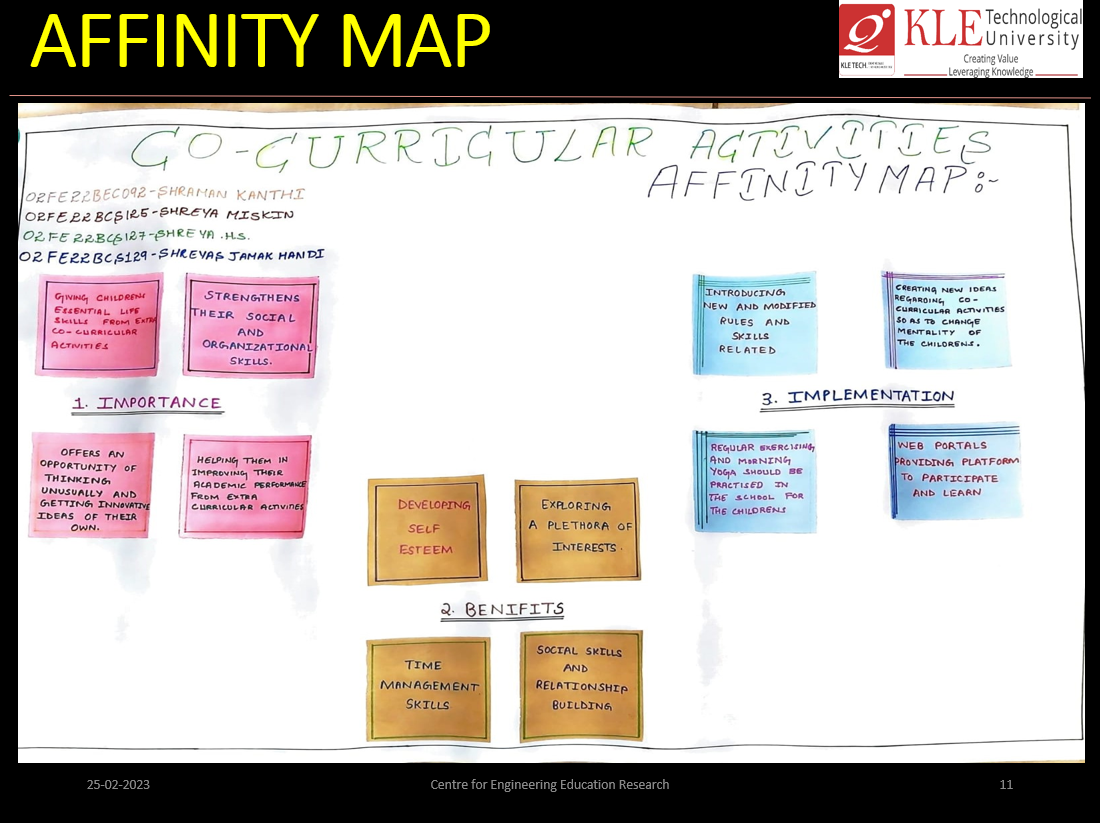 AFFINITY MAP
KLE Technological
University
Creating Value
Leveraging Knowledge
KLE TECH.
CO-CURRICULAR ACTIVITIES
AFFINITY MAP:-
02FE22BEC092-SHRAMAN KANTHI
02FE22BCS125-SHREYA MISKIN
02FE22BCS127-SHREYA .H.S.
02FE22BCS129-SHREYAS JAMAKHANDI
GIVING CHILDRENS
ESSENTIAL LIFE
SKILLS FROM EXTRA
CO-CURRICULAR
ACTIVITIES
STRENGTHENS
THEIR SOCIAL
AND
ORGANIZATIONAL
SKILLS.
1. IMPORTANCE
OFFERS AN
OPPORTUNITY OF
THINKING
UNUSUALLY AND
GETTING INNOVATIVE
IDEAS OF THEIR
OWN.
HELPING THEM IN
IMPROVING THEIR
ACADEMIC PERFORMANCE
FROM EXTRA
CURRICULAR ACTIVITIES
DEVELOPING
SELF
ESTEEM
EXPLORING
A PLETHORA OF
INTERESTS.
2. BENIFITS
TIME
MANAGEMENT
SKILLS
SOCIAL SKILLS
AND
RELATIONSHIP
BUILDING
INTRODUCING
NEW AND MODIFIED
RULES AND
SKILLS
RELATED
CREATING NEW IDEAS
REGARDING CO-
CURRICULAR ACTIVITIES
SO AS TO CHANGE
MENTALITY OF
THE CHILDRENS.
3. IMPLEMENTATION
REGULAR EXERCISING
AND MORNING
YOGA SHOULD BE
PRACTISED IN
THE SCHOOL FOR
THE CHILDRENS
WEB PORTALS
PROVIDING PLATFORM
TO PARTICIPATE
AND LEARN
25-02-2023
Centre for Engineering Education Research
11